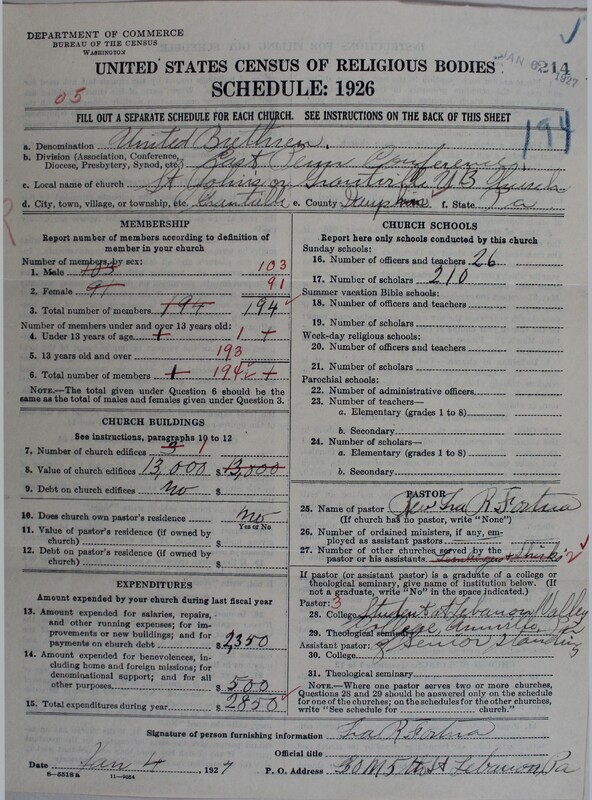 DEPARTMENT OF COMMERCE
BUREAU OF THE CENSUS
WASHINGTON
UNITED STATES CENSUS OF RELIGIOUS BODIES
SCHEDULE: 1926
JAN 1927
214
05
194
FILL OUT A SEPARATE SCHEDULE FOR EACH CHURCH. SEE INSTRUCTIONS ON THE BACK OF THIS SHEET
a. Denomination United Brethren.
b. Division (Association, Conference, Diocese, Presbytery, Synod, etc.) East Penn Conference
c. Local name of church St Johns or Grantville U B Church
d. City, town, village, or township, etc. Grantville e. County Dauphin f. State Pa
MEMBERSHIP
Report number of members according to definition of
member in your church
Number of members by sex:
1. Male 103 103
2. Female 91 91
3. Total number of members 194 194
Number of members under and over 13 years old:
4. Under 13 years of age 1
5. 13 years old and over 193
6. Total number of members 194
NOTE.—The total given under Question 6 should be
same as the total of males and females given under Question 3.
CHURCH BUILDINGS
See instructions, paragraphs 10 to 12
7. Number of church edifices 1
8. Value of church edifices 13,000 $ 13,000
9. Debt on church edifices no $
10. Does church own pastor's residence no
Yes or No
11. Value of pastor's residence (if owned by
church) $
12. Debt on pastor's residence (if owned by
church) $
EXPENDITURES
Amount expended by church during last fiscal year
13. Amount expended for salaries, repairs,
and other running expenses; for improvements
or new buildings; and for
payments on church debt $ 2350
14. Amount expended for benevolences,
including home and foreign missions; for
denominational support; and for all
other purposes $ 500
15. Total expenditures during year $ 2850
CHURCH SCHOOLS
Report here only schools conducted by this church
Sunday schools:
16. Number of officers and teachers 26
17. Number of scholars 210
Summer vacation Bible schools:
18. Number of officers and teachers
19. Number of scholars
Week-day religious schools:
20. Number of officers and teachers
21. Number of scholars
Parochial schools:
22. Number of administrative officers
23. Number of teachers—
a. Elementary (grades 1 to 8)
b. Secondary
24. Number of scholars—
a. Elementary (grades 1 to 8)
b. Secondary
PASTOR
25. Name of pastor Rev Ira R Fortna
(If church has no pastor, write "None")
26. Number of ordained ministers, if any, employed
as assistant pastors
27. Number of other churches served by the
pastor or his assistants 2
If pastor (or assistant pastor) is a graduate of a college or
theological seminary, give name of institution below. (If
not a graduate, write "No" in the space indicated.)
Pastor: 3
28. College Student at Lebanon Valley
29. Theological seminary College, Annville, Pa
Assistant pastor: of Senior Standing
30. College
31. Theological seminary
NOTE.—Where one pastor serves two or more churches,
Questions 28 and 29 should be answered only on the schedule
for one of the churches; on the schedules for the other churches,
write "See schedule for church."
Signature of person furnishing information Ira R Fortna
Official title
Date Jan 4, 1927 P. O. Address 30 N 5th St Lebanon Pa
8—5518 a 11—9064